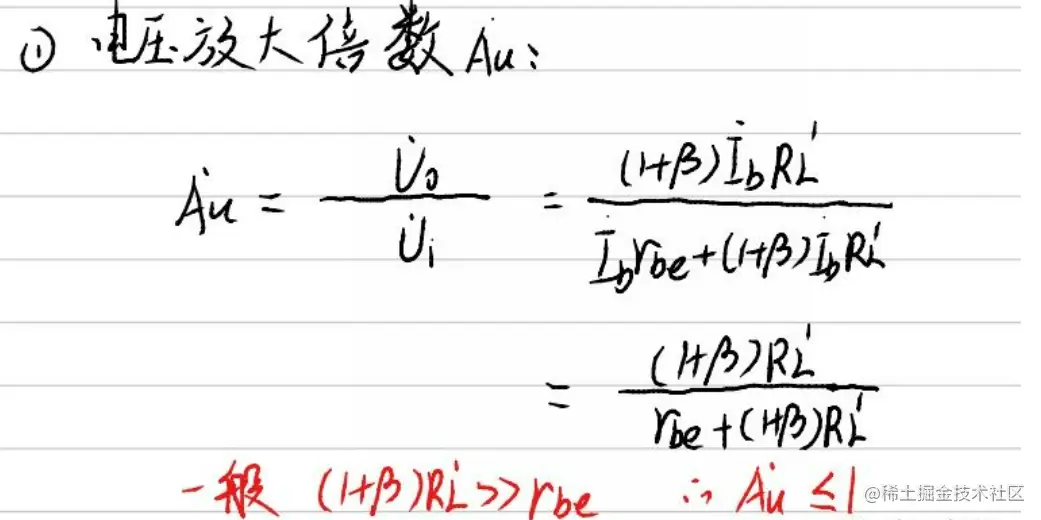 ① 电压放大倍数 Au:
Ȧu = U̇o / U̇i = (1+β)İbRL' / (İbrbe+(1+β)İbRL')
= (1+β)RL' / (rbe+(1+β)RL')
一般 (1+β)RL'>>rbe ∴ Ȧu ≤1
@稀土掘金技术社区